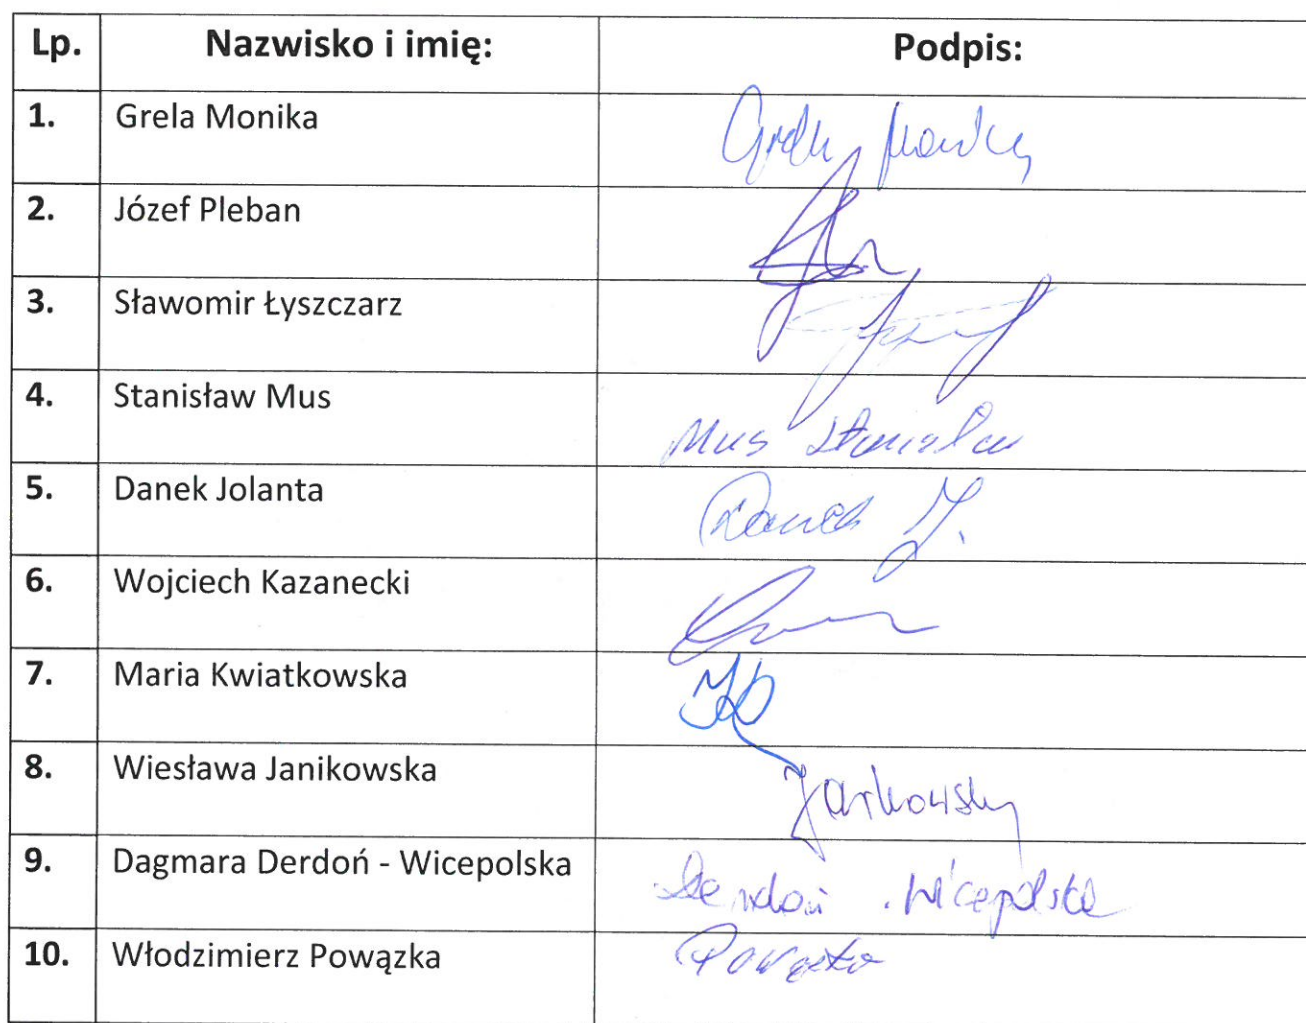 Lp. Nazwisko i imię: Podpis:
1. Grela Monika Grela Monika
2. Józef Pleban
3. Sławomir Łyszczarz
4. Stanisław Mus Mus Stanisław
5. Danek Jolanta Danek J.
6. Wojciech Kazanecki
7. Maria Kwiatkowska
8. Wiesława Janikowska
9. Dagmara Derdoń - Wicepolska Derdoń - Wicepolska
10. Włodzimierz Powązka Powązka